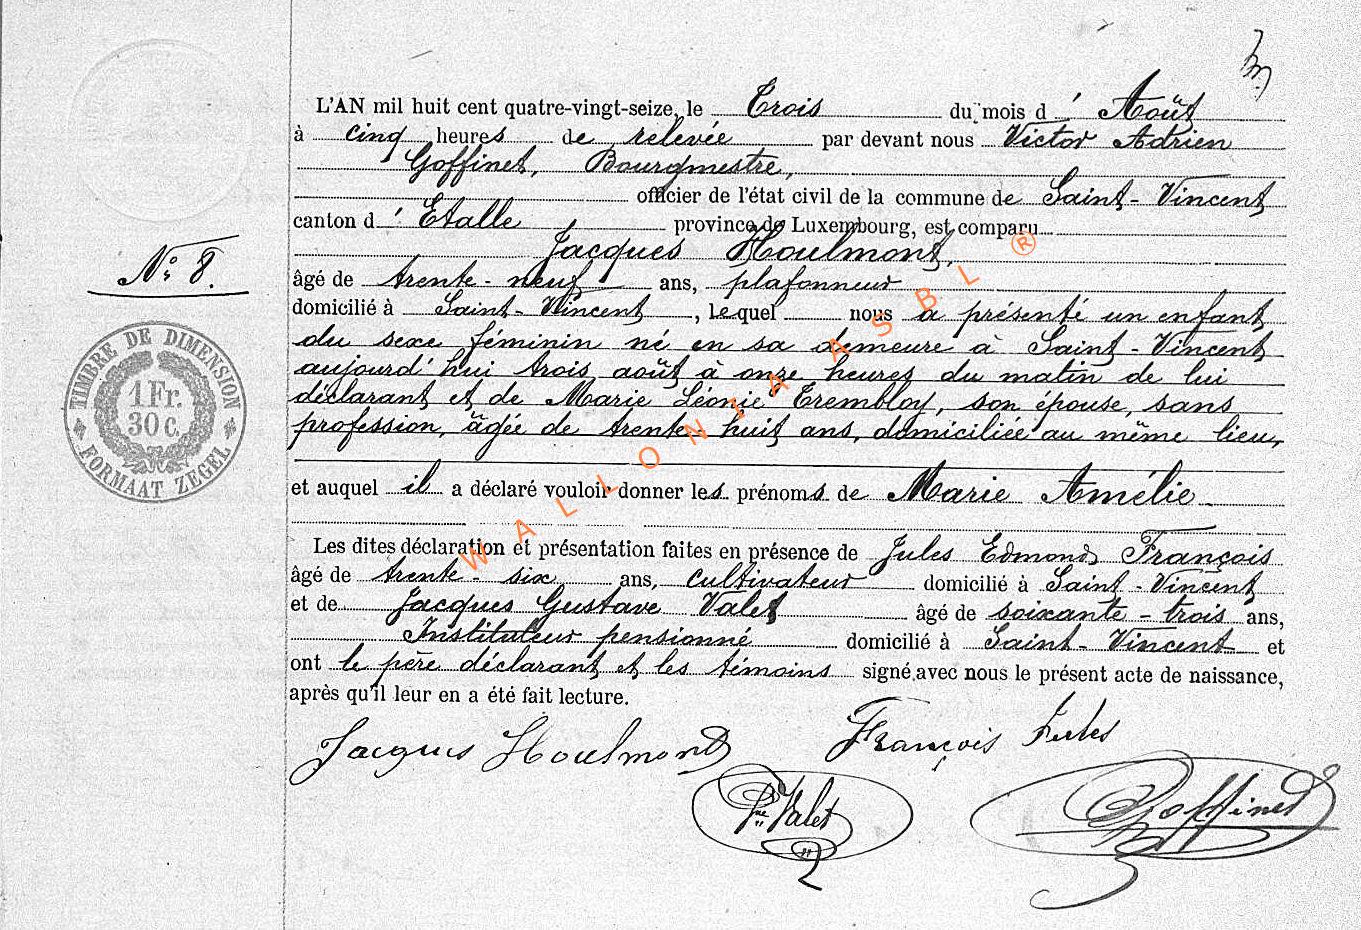 L'AN mil huit cent quatre-vingt-seize, le Trois du mois d' Août
à cinq heures de relevée par devant nous Victor Adrien
Goffinet, Bourgmestre,
officier de l'état civil de la commune de Saint-Vincent
canton d' Etalle province de Luxembourg, est comparu
Jacques Houlmont,
N° 8.
âgé de trente-neuf ans, plafonneur
domicilié à Saint-Vincent, lequel nous a présenté un enfant
du sexe féminin né en sa demeure à Saint-Vincent
aujourd'hui trois août à onze heures du matin de lui
déclarant et de Marie Léonie Trembloy, son épouse, sans
profession, âgée de trente-huit ans, domiciliée au même lieu,
TIMBRE DE DIMENSION
1 Fr.
30 C.
FORMAAT ZEGEL
et auquel il a déclaré vouloir donner les prénoms de Marie Amélie
Les dites déclaration et présentation faites en présence de Jules Edmond François
âgé de trente-six ans, cultivateur domicilié à Saint-Vincent
et de Jacques Gustave Valet âgé de soixante-trois ans,
Instituteur pensionné domicilié à Saint-Vincent et
ont le père déclarant et les témoins signé avec nous le présent acte de naissance,
après qu'il leur en a été fait lecture.
Jacques Houlmont
François Jules
Valet
Goffinet
WALLONIA ASBL ®